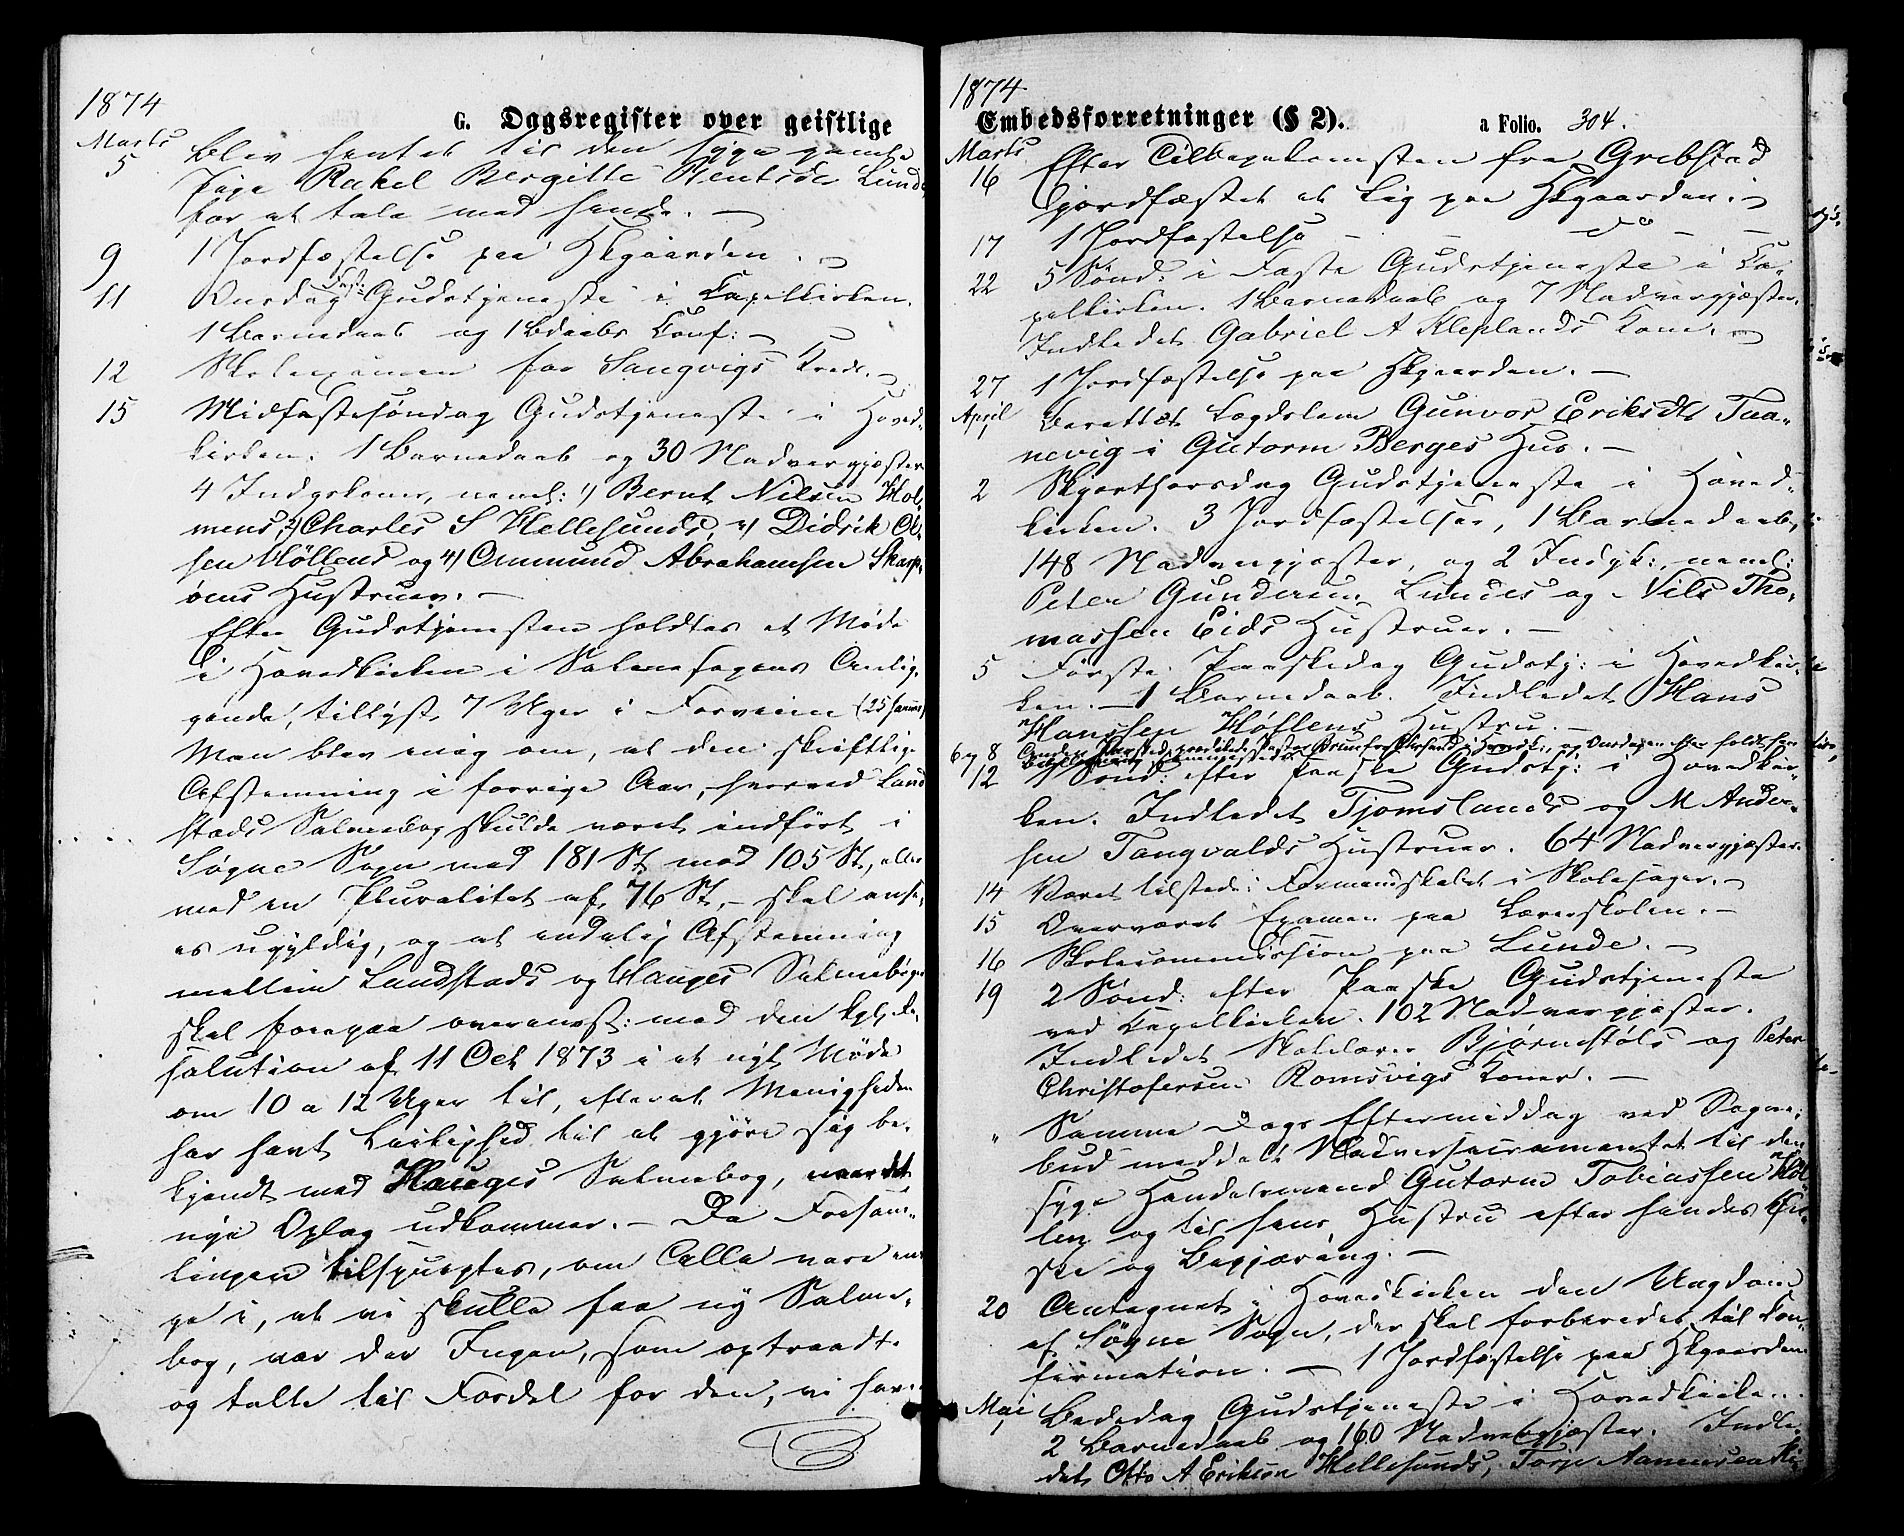 1874
G. Dagsregister over geistlige
Marts
5 Blev hentet til den syge gamle
Pige Rakel Bergitte Berntsdr Lunde
for at tale med hende. —
9 1 Jordfæstelse paa Kgaarden. —
11 Onsdag Fast: Gudstjeneste i Capelkirken.
1 Barnedaab og 1 Bdaabs Conf: —
12 Skoleexamen for Sangvigs Kreds. —
15 Midfastesøndag Gudstjeneste i Hoved-
kirken. 1 Barnedaab og 30 Nadvergjæster
4 Indgskoner, neml: 1) Bernt Nilsen Hol-
mens, 2) Charles S Hellesunds, 3) Didrik Ol-
sen Höllens og 4) Ommund Abrahamsen Skarp-
øens Hustruer. —
Efter Gudstjenesten holdtes et Møde
i Hovedkirken i Salmesagens Anlig-
gende, tillyst 7 Uger i Forveien (25 Januar)
Man blev enig om, at den skriftlige
Afstemning i forrige Aar, hvorved Land-
stads Salmebog skulde været indført i
Søgne Sogn med 181 St. mod 105 St., eller
med en Pluralitet af 76 St, — skal anse-
es ugyldig, og at endelig Afstemning
mellem Landstads og Hauges Salmebøger
skal foregaa overensst: med den kgl. Re-
solution af 11 Oct 1873 i et nyt Møde
om 10 a 12 Uger til, efterat Menigheden
har havt Leilighed til at gjøre sig be-
kjendt med Hauges Salmebog, naar det
nye Oplag udkommer. — Da Forsam-
lingen tilspurgtes, om Alle vare eni-
ge i, at vi skulle faa ny Salme-
bog, var der Ingen, som optraadte
og talte til Fordel for den, vi have
1874
Embedsforretninger (§ 2). a Folio. 304.
Marts
16 Efter Tilbagekomsten fra Grebstad
jordfæstet et Lig paa Kgaarden. —
17 1 Jordfæstelse — do — —
22 5 Sønd: i Faste Gudstjeneste i Ca-
pelkirken. 1 Barnedaab og 7 Nadvergjæster.
Indledet Gabriel A Kleplands Kone. —
27 1 Jordfæstelse paa Kgaarden. —
April
1 Berettet Lægdslem Gunvor Eriksdtr Taa-
nevig i Gutorm Berges Hus. —
2 Skjærthorsdag Gudstjeneste i Hoved-
kirken. 3 Jordfæstelser, 1 Barnedaab,
148 Nadvergjæster, og 2 Indgk:, neml:
Peter Gundersen Lundes og Nils Tho-
massen Eids Hustruer. —
5 Første Paaskedag Gudstj: i Hovedkir-
ken. — 1 Barnedaab. Indledet Hans
Hanssen Høllens Hustru. —
6 og 8 Anden Paasked. prædikede Pastor i Hovedk:, og Onsdagen
12 1 Sønd: efter Paaske Gudstj: i Hovedkir-
ken. Indledet Tjomslands og M Ander-
sen Tangvalds Hustruer. 64 Nadvergjæster.
14 Været tilstede i Formandskabet i Skolesager. —
15 Overværet Examen paa Lærerskolen. —
16 Skolecommission paa Lunde. —
19 2 Sønd: efter Paaske Gudstjeneste
ved Capelkirken. 102 Nadvergjæster.
Indledet Skolelærer Bjørnestøls og Peter
Christofersen Romsvigs Koner. —
" Samme Dags Eftermiddag ved Sogne-
bud meddelt Nadversacramentet til den
syge Handelsmand Gutorm Tobiassen Höl-
len og til hans Hustru efter hendes Øn-
ske og Begjæring. —
20 Antegnet i Hovedkirken den Ungdom
af Søgne Sogn, der skal forberedes til Con-
firmation. — 1 Jordfæstelse paa Kgaarden
Mai
1 Bededag Gudstjeneste i Hovedkirken.
2 Barnedaab og 160 Nadvergjæster. Indle-
det Otto A Erikson Hellesunds, Torje Aanensen